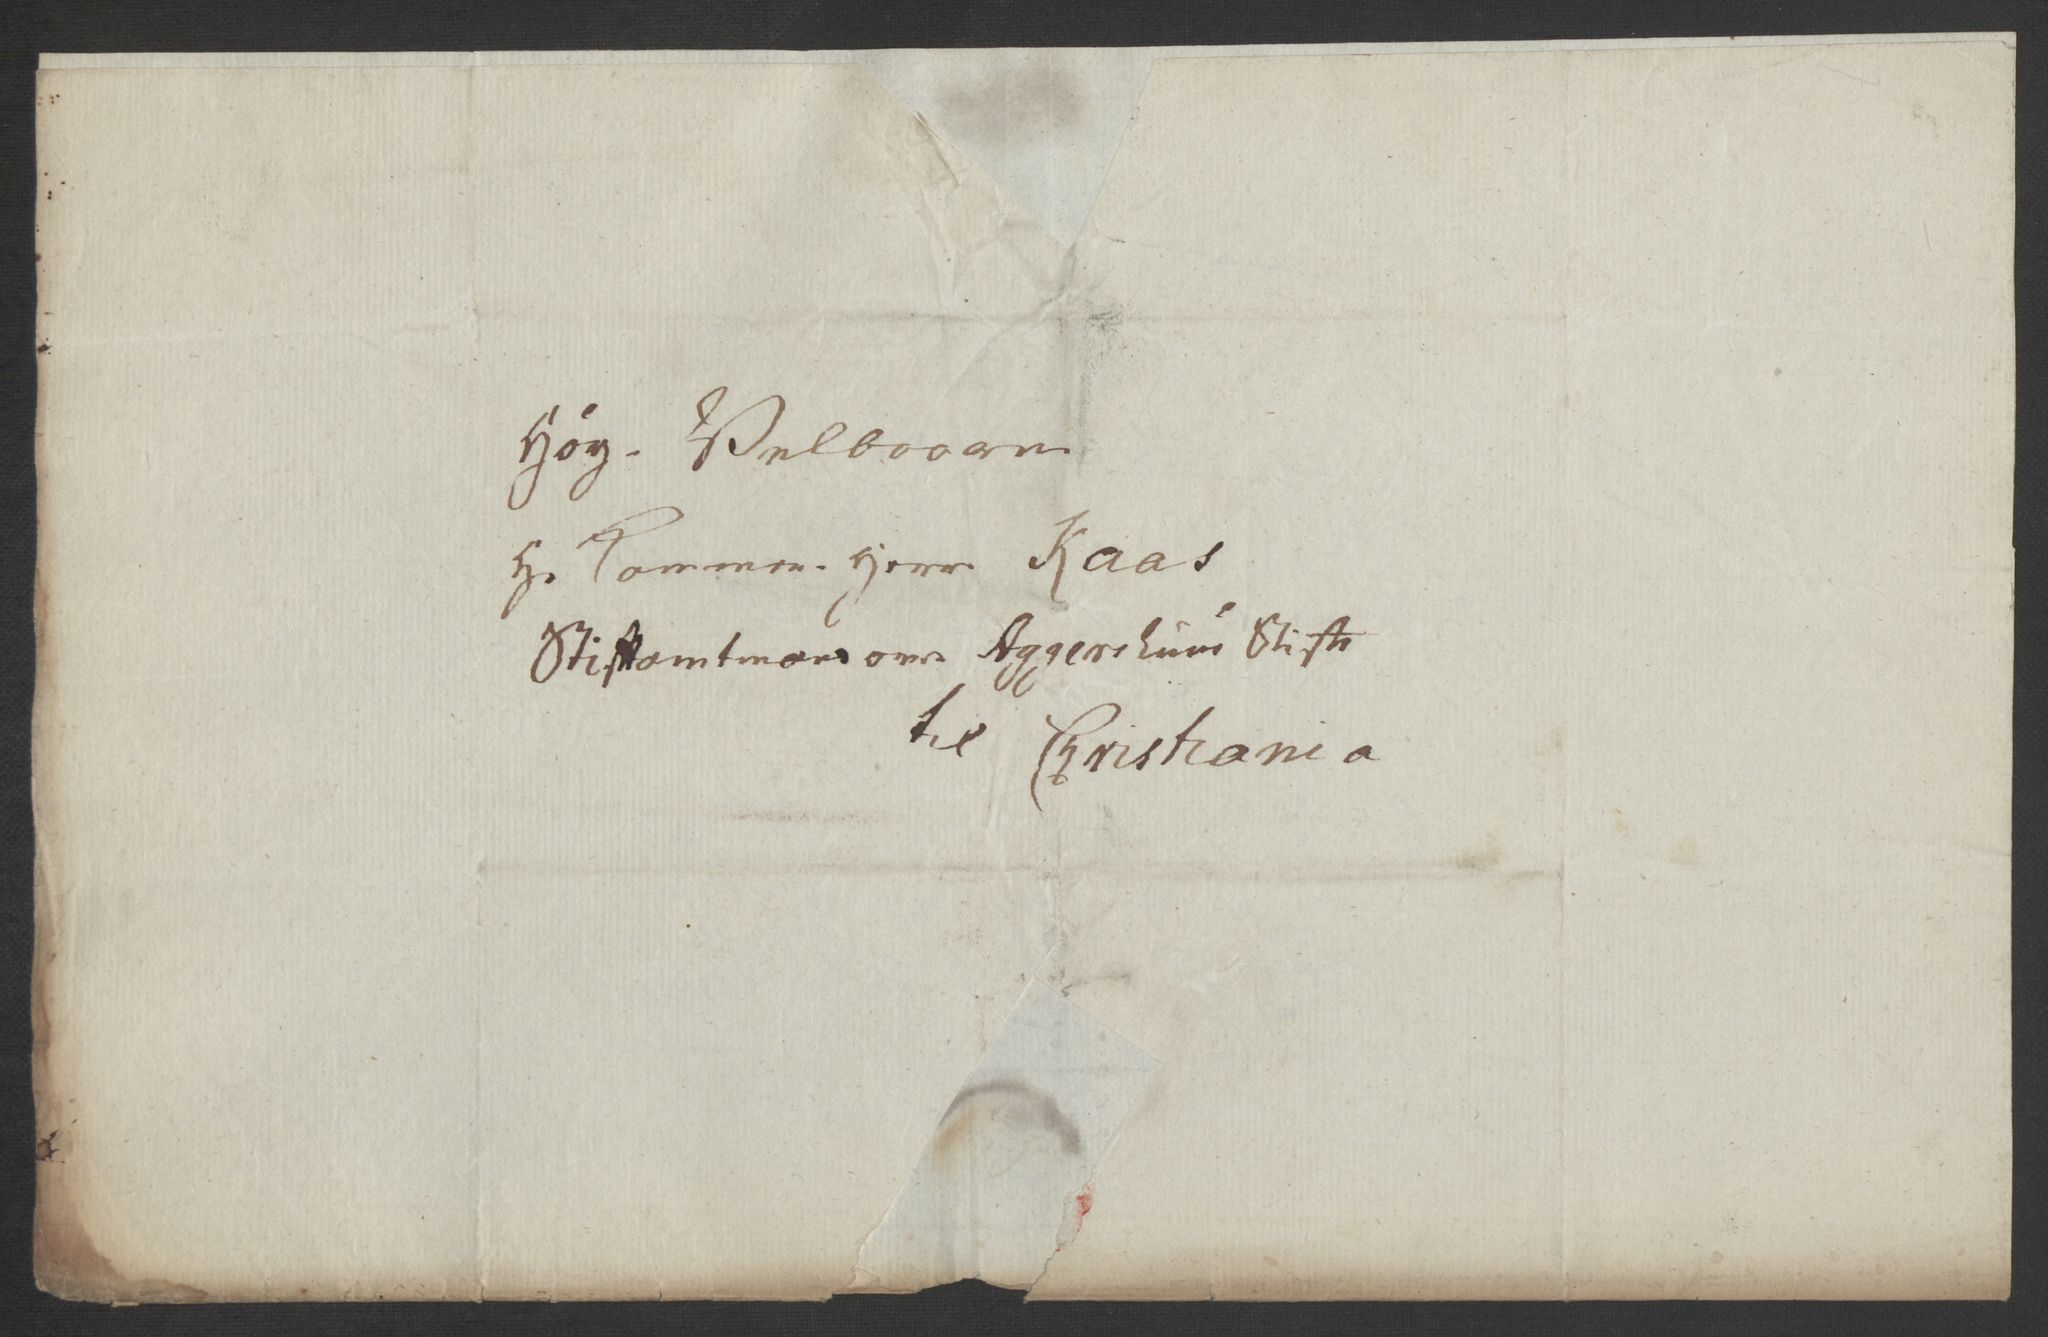 Høy. Velbaarne
H. Kammer. Herre Kaas
Stiftamtmand over Aggershuus Stift
til Christiania